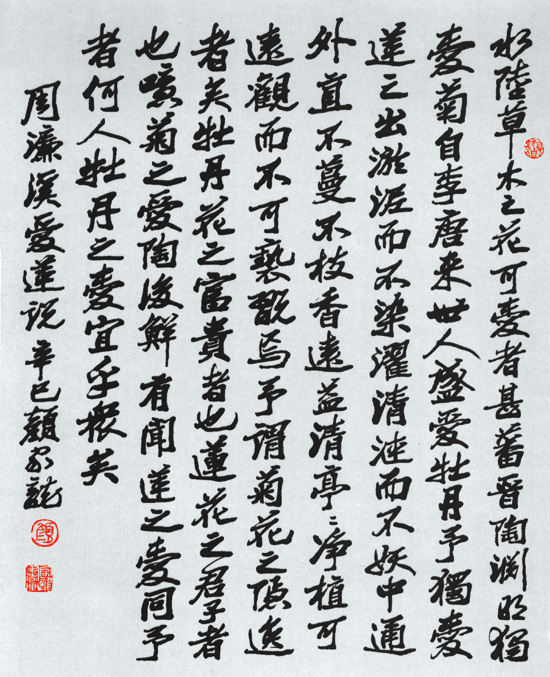 水陸草木之花可愛者甚蕃晉陶淵明獨
愛菊自李唐来世人盛愛牡丹予獨愛
蓮之出淤泥而不染濯清漣而不妖中通
外直不蔓不枝香遠益清亭〻净植可
遠觀而不可褻翫焉予謂菊花之隱逸
者矣牡丹花之富貴者也蓮花之君子者
也噫菊之愛陶後鮮有聞蓮之愛同予
者何人牡丹之愛宜乎衆矣
周濂溪愛蓮説 辛巳顧